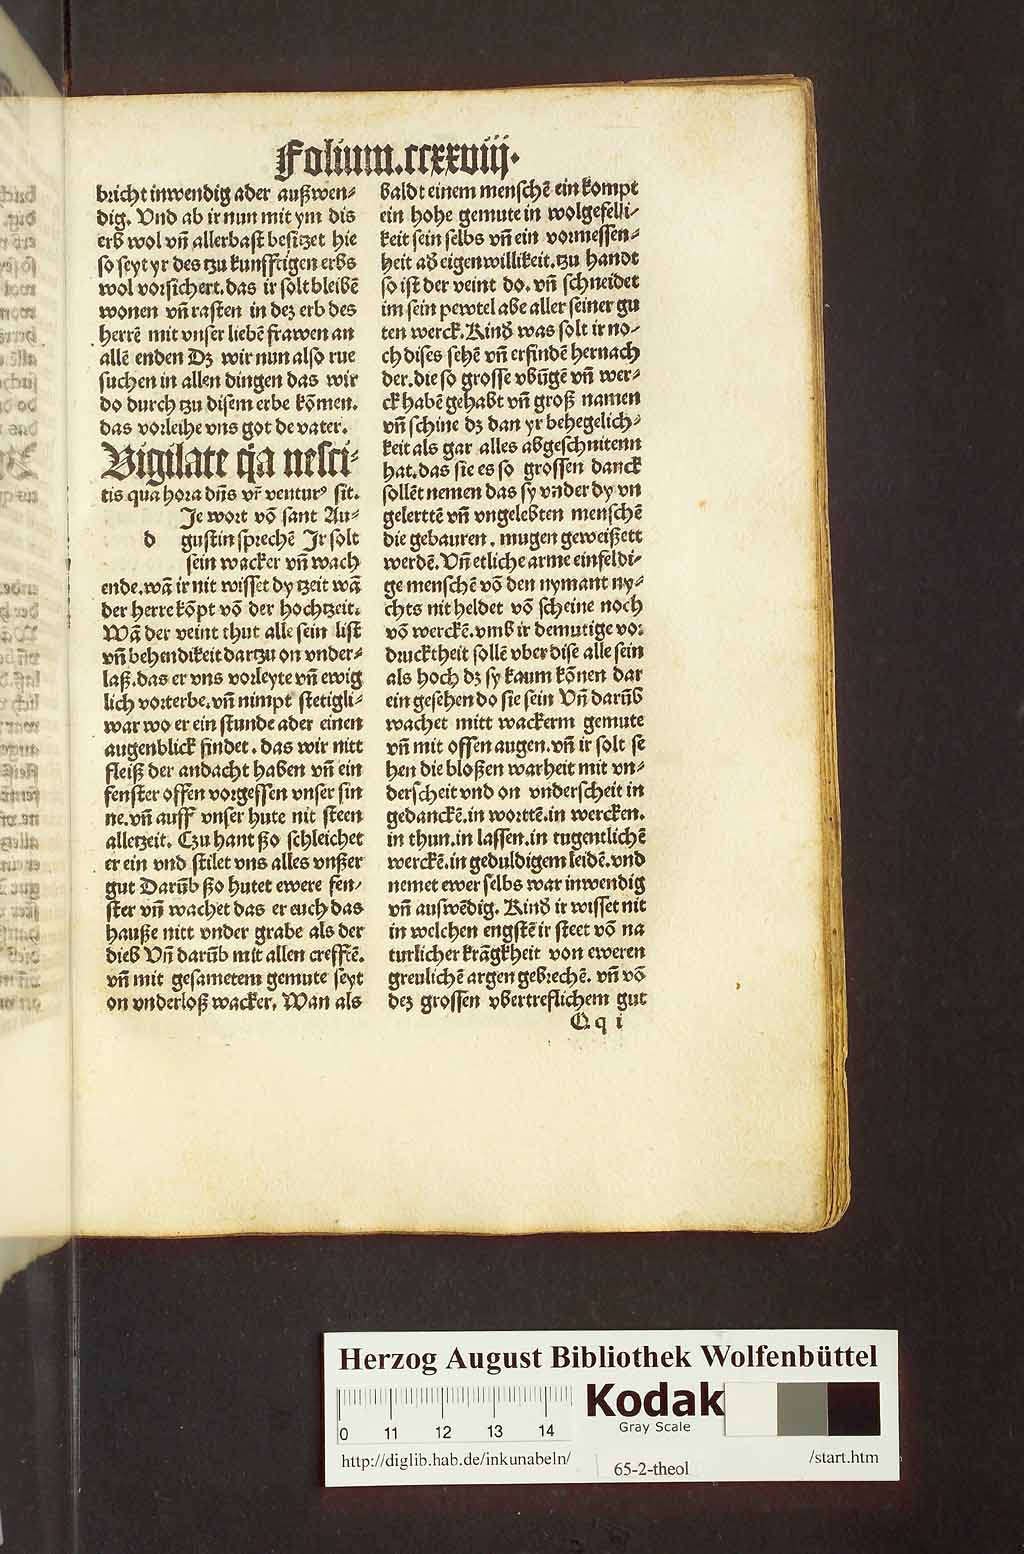 Folium.ccxxviij.
bricht inwendig ader außwen⸗
dig. Vnd ab ir nun mit ym dis
erb wol vn̄ allerbast besitzet hie
so seyt yr des tzu kunfftigen erbs
wol vorsichert. das ir solt bleibē
wonen vn̄ rasten in dez erb des
herrē mit vnser liebē frawen an
allē enden Dz wir nun also rue
suchen in allen dingen das wir
do durch tzu disem erbe kōmen.
das vorleihe vns got de vater.
Vigilate q̄a nesci⸗
tis qua hora dn̄s vr̄ venturꝰ sit.
Je wort vō sant Au⸗
d gustin sprechē Ir solt
sein wacker vn̄ wach
ende. wā ir nit wisset dy tzeit wā
der herre kōpt vō der hochtzeit.
Wā der veint thut alle sein list
vn̄ behendikeit dartzu on vnder⸗
laß. das er vns vorleyte vn̄ ewig
lich vorterbe. vn̄ nimpt stetigli⸗
war wo er ein stunde ader einen
augenblick findet. das wir nitt
fleiß der andacht haben vn̄ ein
fenster offen vorgessen vnser sin
ne. vn̄ auff vnser hute nit steen
alletzeit. Czu hant ßo schleichet
er ein vnd stilet vns alles vnßer
gut Darūb ßo hutet ewere fen⸗
ster vn̄ wachet das er euch das
hauße nitt vnder grabe als der
dieb Vn̄ darūb mit allen crefftē.
vn̄ mit gesametem gemute seyt
on vnderloß wacker. Wan als
baldt einem menschē ein kompt
ein hohe gemute in wolgefelli⸗
keit sein selbs vn̄ ein vormessen⸗
heit ad eigenwillikeit. tzu handt
so ist der veint do. vn̄ schneidet
im sein pewtel abe aller seiner gu
ten werck. Kind was solt ir no⸗
ch dises sehē vn̄ erfindē hernach
der. die so grosse vbūgē vn̄ wer⸗
ck habē gehabt vn̄ groß namen
vn̄ schine dz dan yr behegelich⸗
keit als gar alles abgeschnitenn
hat. das sie es so grossen danck
sollēt nemen das sy vnder dy vn
gelerttē vn̄ vngelebten menschē
die gebauren. mugen geweißett
werdē. Vn̄ etliche arme einfeldi⸗
ge menschē vō den nymant ny⸗
chts nit heldet vō scheine noch
vō werckē. vmb ir demutige vor
drucktheit sollē vber dise alle sein
als hoch dz sy kaum kōnen dar
ein gesehen do sie sein Vn̄ darūb
wachet mitt wackerm gemute
vn̄ mit offen augen. vn̄ ir solt se
hen die bloßen warheit mit vn⸗
derscheit vnd on vnderscheit in
gedanckē. in worttē. in wercken.
in thun. in lassen. in tugentlichē
werckē. in geduldigem leidē. vnd
nemet ewer selbs war inwendig
vn̄ auswēdig. Kind ir wisset nit
in welchen engstē ir steet vō na
turlicher krāgkheit von eweren
greulichē argen gebrechē. vn̄ vō
dez grossen vbertreflichem gut
Q q i
Herzog August Bibliothek Wolfenbüttel
0 11 12 13 14
Kodak
Gray Scale
http://diglib.hab.de/inkunabeln/
65-2-theol
/start.htm